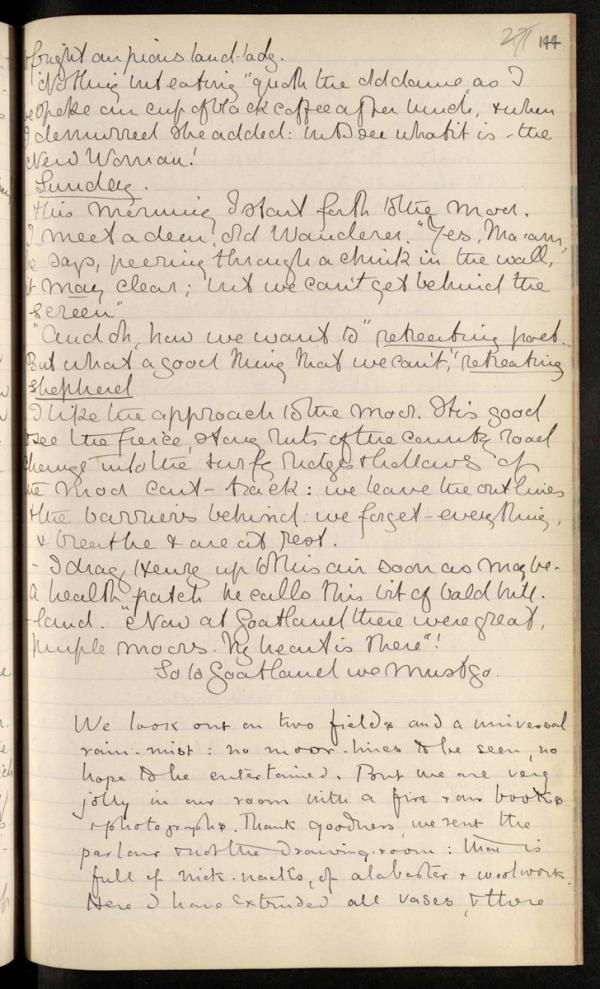 27 144
our pious land-lady.
"Nothing but eating" quoth the old dame, as I
spoke our cup of black coffee after lunch, & when
I demurred she added: but to see what it is – the
New Woman!
Sunday.
This morning I start forth to the moor.
I meet a dear old Wanderer. "Yes, Ma'am,
he says, peering through a chink in the wall,
it may clear; but we can't get behind the
screen"
"And oh, how we want to" retreating poet.
But what a good thing that we can't," retreating
shepherd
I like the approach to the moor. It is good
to see the fierce, stony ruts of the country road
change into the turfy ridges & hollows of
the moor cart-track: we leave the outlines
& the barriers behind: we forget everything,
& breathe & are at rest.
– I drag Henry up to this air soon as may be –
a heath patch he calls this bit of bald hill-
-land. "Now at Goatland there were great,
purple moors. My heart is there"!
So to Goatland we must go.
We look out on two fields and a universal
rain-mist: no moor-lines to be seen, no
hope to be entertained. But we are very
jolly in our room with a fire & our books
& photographs. Thank goodness, we rent the
parlour & not the drawing-room: that is
full of nick-nacks, of alabaster & woolwork.
Here I have extruded all vases, & there